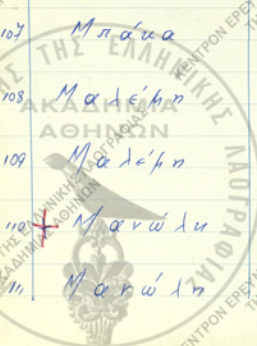 107 Μπάκα
108 Μαλέμη
109 Μαλέμη
110 + Μανώλη
111 Μανώλη
ΚΕΝΤΡΟΝ ΕΡΕΥ
ΤΗΣ ΕΛΛΗΝΙΚΗΣ ΛΑΟΓΡΑΦΙΑΣ
ΑΚΑΔΗΜΙΑ
ΑΘΗΝΩΝ